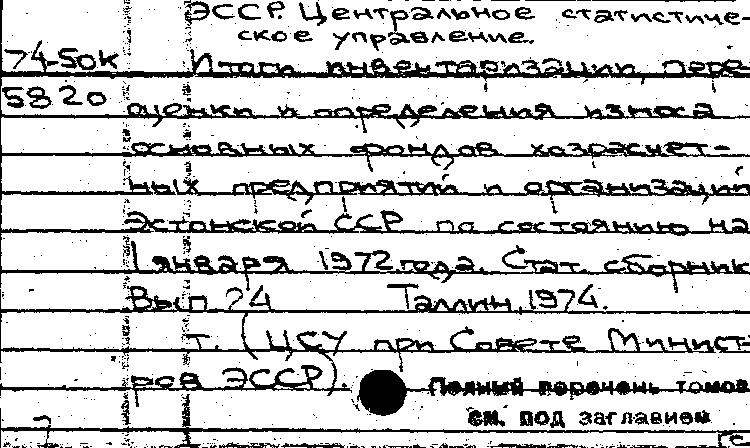 ЭССР. Центральное статистиче-
ское управление.
74-50к Итоги инвентаризации, пере-
5820 оценки и определения износа
основных фондов хозрасчет-
ных предприятий и организаций
Эстонской ССР по состоянию на
1 января 1972 года. Стат. сборник
Вып. 24 Таллин, 1974.
т. (ЦСУ при Совете Минист-
ров ЭССР).
Полный перечень томов
см. под заглавием